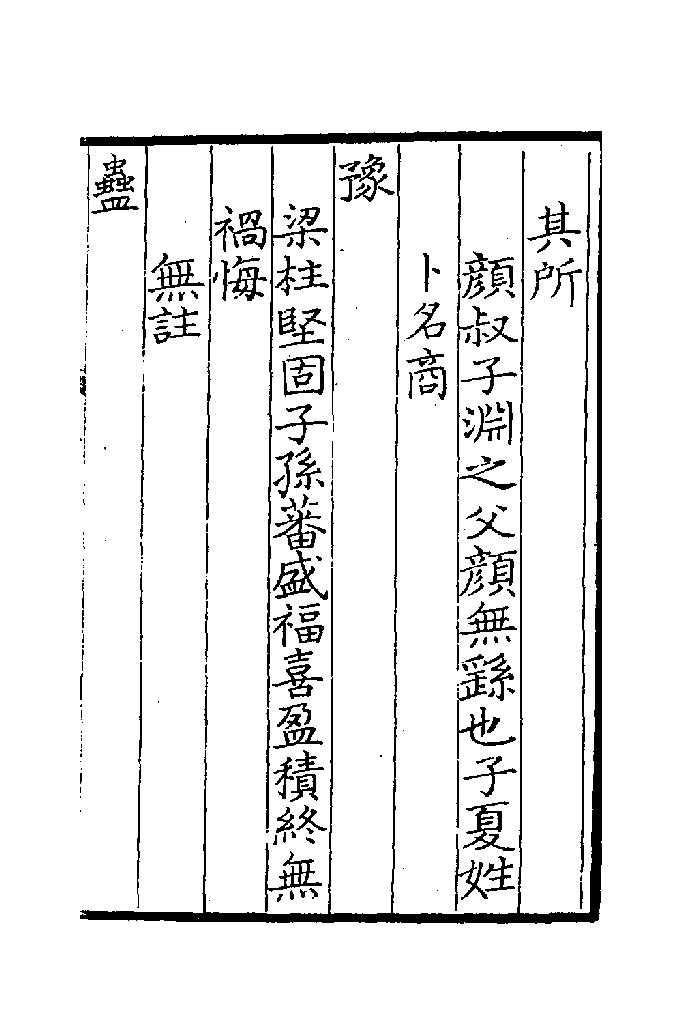 其所
顔叔子淵之父顔無繇也子夏姓
卜名商
豫
梁柱堅固子孫蕃盛福喜盈積終無
禍悔
無註
蠱